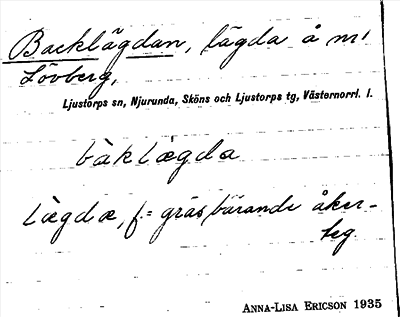 Backlägdan, lägda å m1
Lövberg,
Ljustorps sn, Njurunda, Sköns och Ljustorps tg, Västernorrl. l.
bàklægda
lægdæ, f. = gräsbärande åker-
teg
ANNA-LISA ERICSON 1935